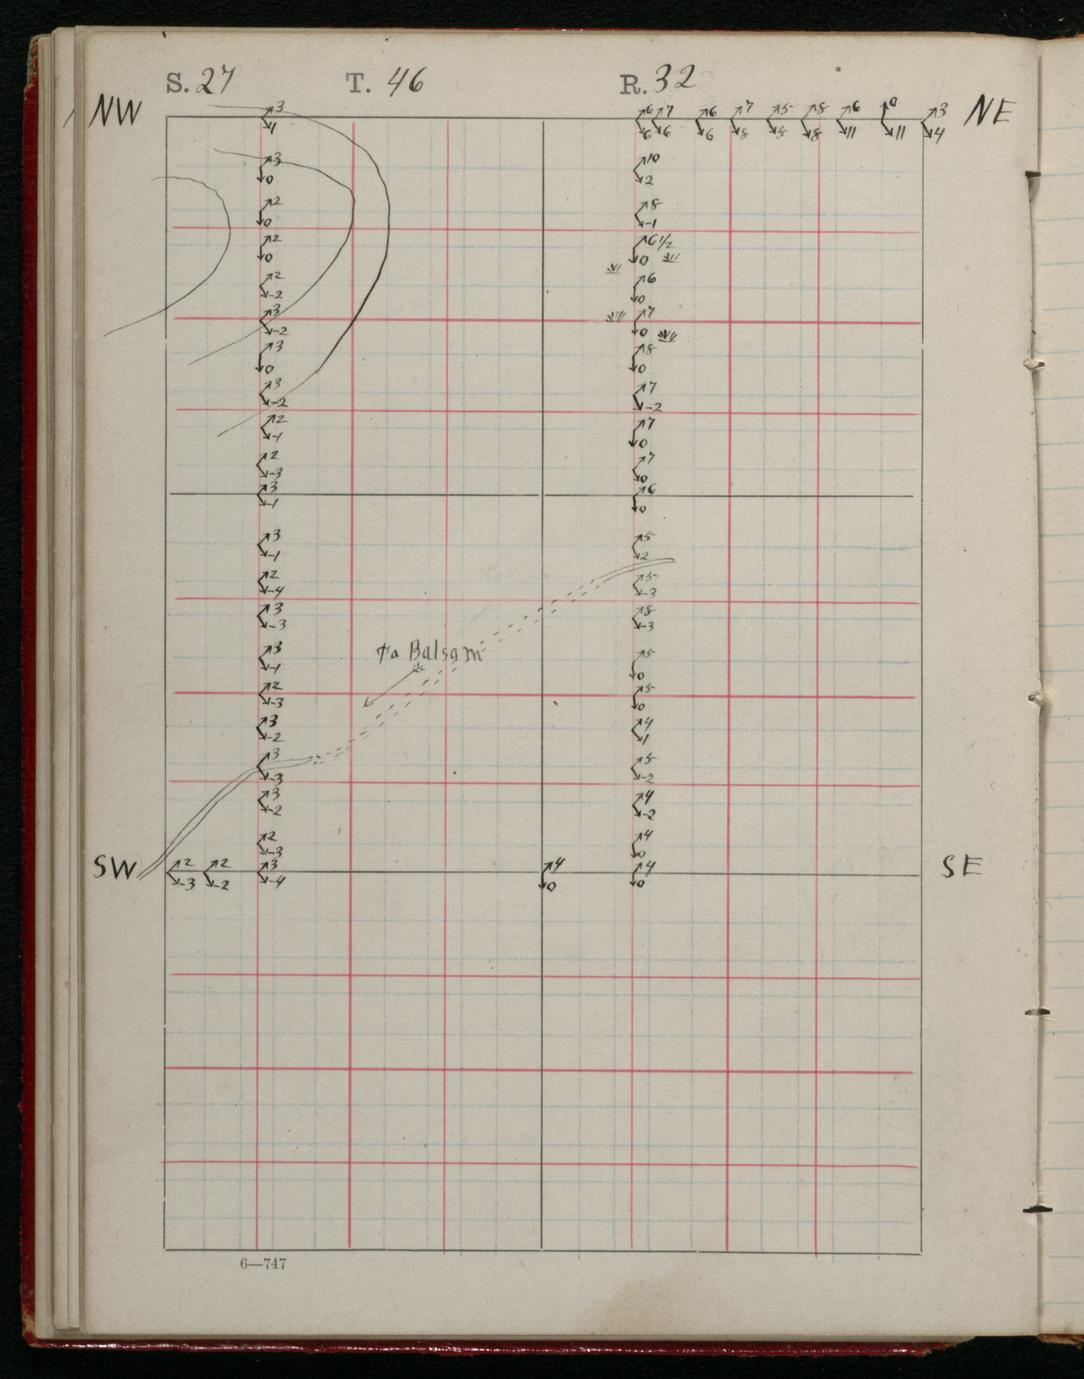 S. 27 T. 46 R. 32
NW NE
3 6 7 6 7 5 8 6 0 3
1 6 6 6 8 5 8 11 11 4
3 10
0 2
2 8
0 -1
2 6 1/2
0 0
2 6
-2 0
3 7
-2 0
3 8
0 0
3 7
-2 -2
2 7
-1 0
2 7
-3 0
3 6
-1 0
3 5
-1 2
2 5
-4 -3
3 8
-3 -3
to Balsam
3 5
-1 0
2 5
-3 0
3 4
-2 1
3 5
-3 -2
3 4
-2 -2
2 4
-3 0
SW SE
2 2 3 4 4
-3 -2 -4 0 0
6—747